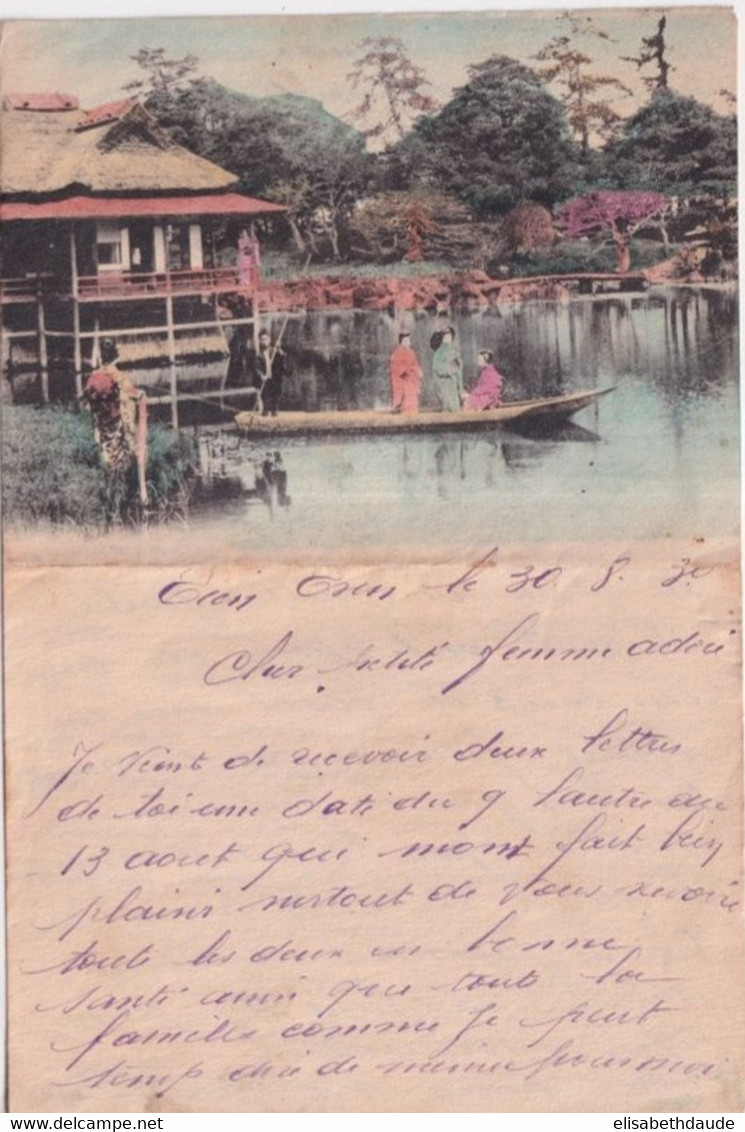 le 30. 8. 30
Cher petite femme adoré
Je vient de recevoir deux lettres
de toi une daté du 9 l'autre du
13 aout qui mont fait bien
plaisir surtout de vous savoir
toute les deux en bonne
santé ainsi que toute la
famille comme je peut
temp dire de même pour moi
elisabethdaude